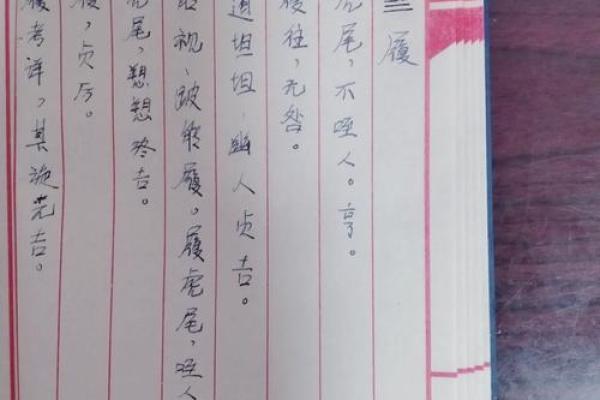 履
虎尾，不咥人。亨。
履往，无咎。
道坦坦，幽人贞吉。
能视、跛能履。履虎尾，咥人
虎尾，愬愬终吉。
履，贞厉。
履考详，其旋元吉。